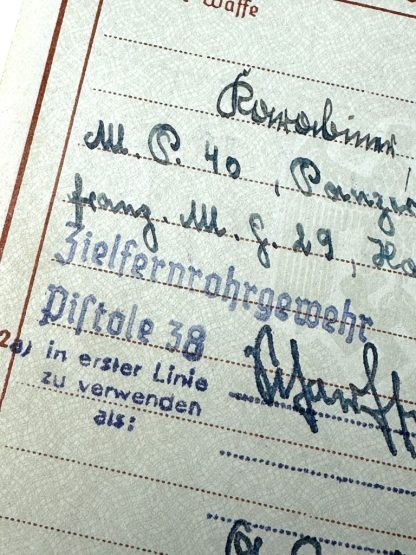 Waffe
Karabiner,
M. P. 40, Panzer
franz. M. G. 29, Ka
Zielfernrohrgewehr
Pistole 38
2a) in erster Linie
zu verwenden
als: Scharf